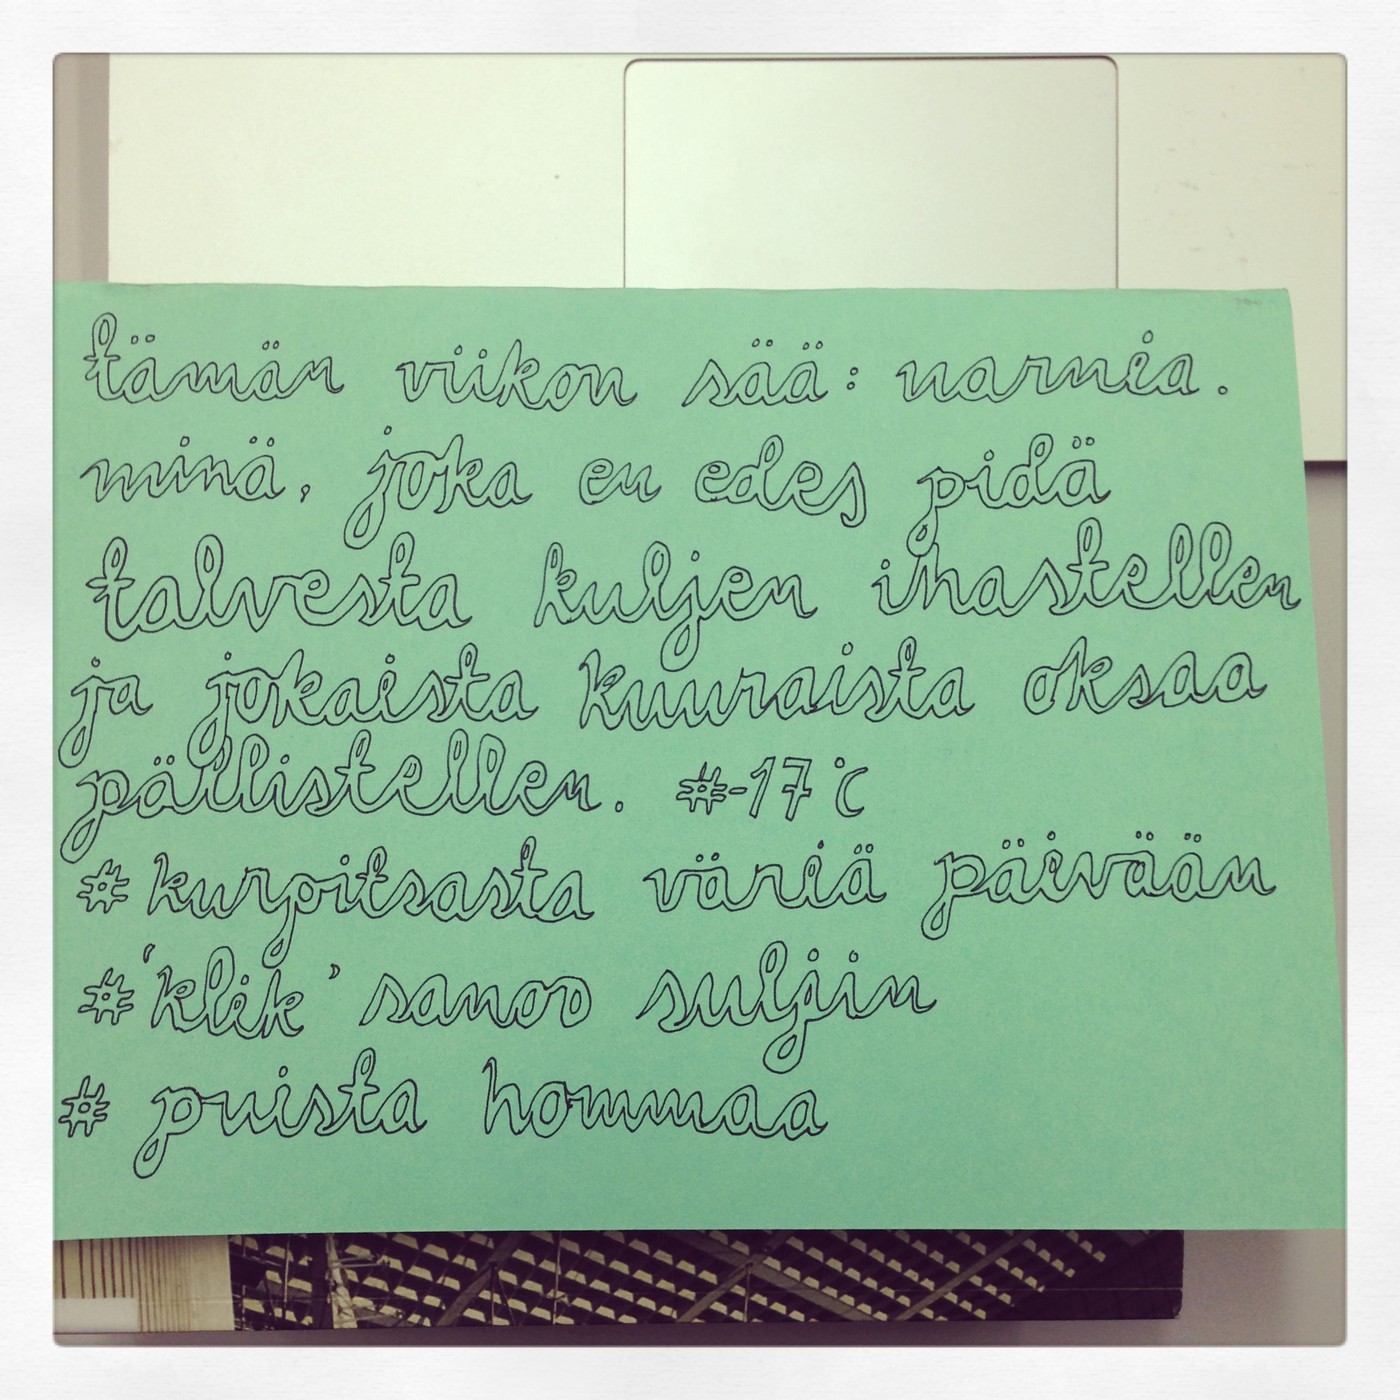 tämän viikon sää: narnia.
minä, joka en edes pidä
talvesta kuljen ihastellen
ja jokaista kuuraista oksaa
pällistellen. #-17°C
#kurpitsasta väriä päivään
#'klik' sanoo suljin
# puista hommaa